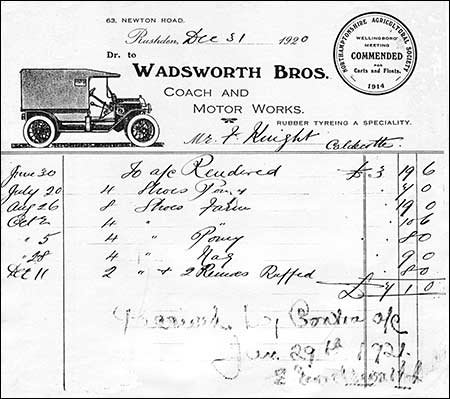 63, NEWTON ROAD.
Rushden, Dec 31 1920
NORTHAMPTONSHIRE AGRICULTURAL SOCIETY
WELLINGBORO' MEETING
COMMENDED
FOR
Carts and Floats.
1914
Dr. to
WADSWORTH BROS.
COACH AND
MOTOR WORKS.
RUBBER TYREING A SPECIALITY.
Mr F Knight
June 30 To a/c Rendered £ 3 19 6
July 20 4 Shoes Pony 4 0
Aug 26 8 Shoes Farm 19 0
Oct 4 " 10 6
" 5 4 " Pony 8 0
" 28 4 " Nag 9 0
Dec 11 2 " + 2 Removes 8 0
£ 7 1 0
by Contra a/c
Jan 29th 1921